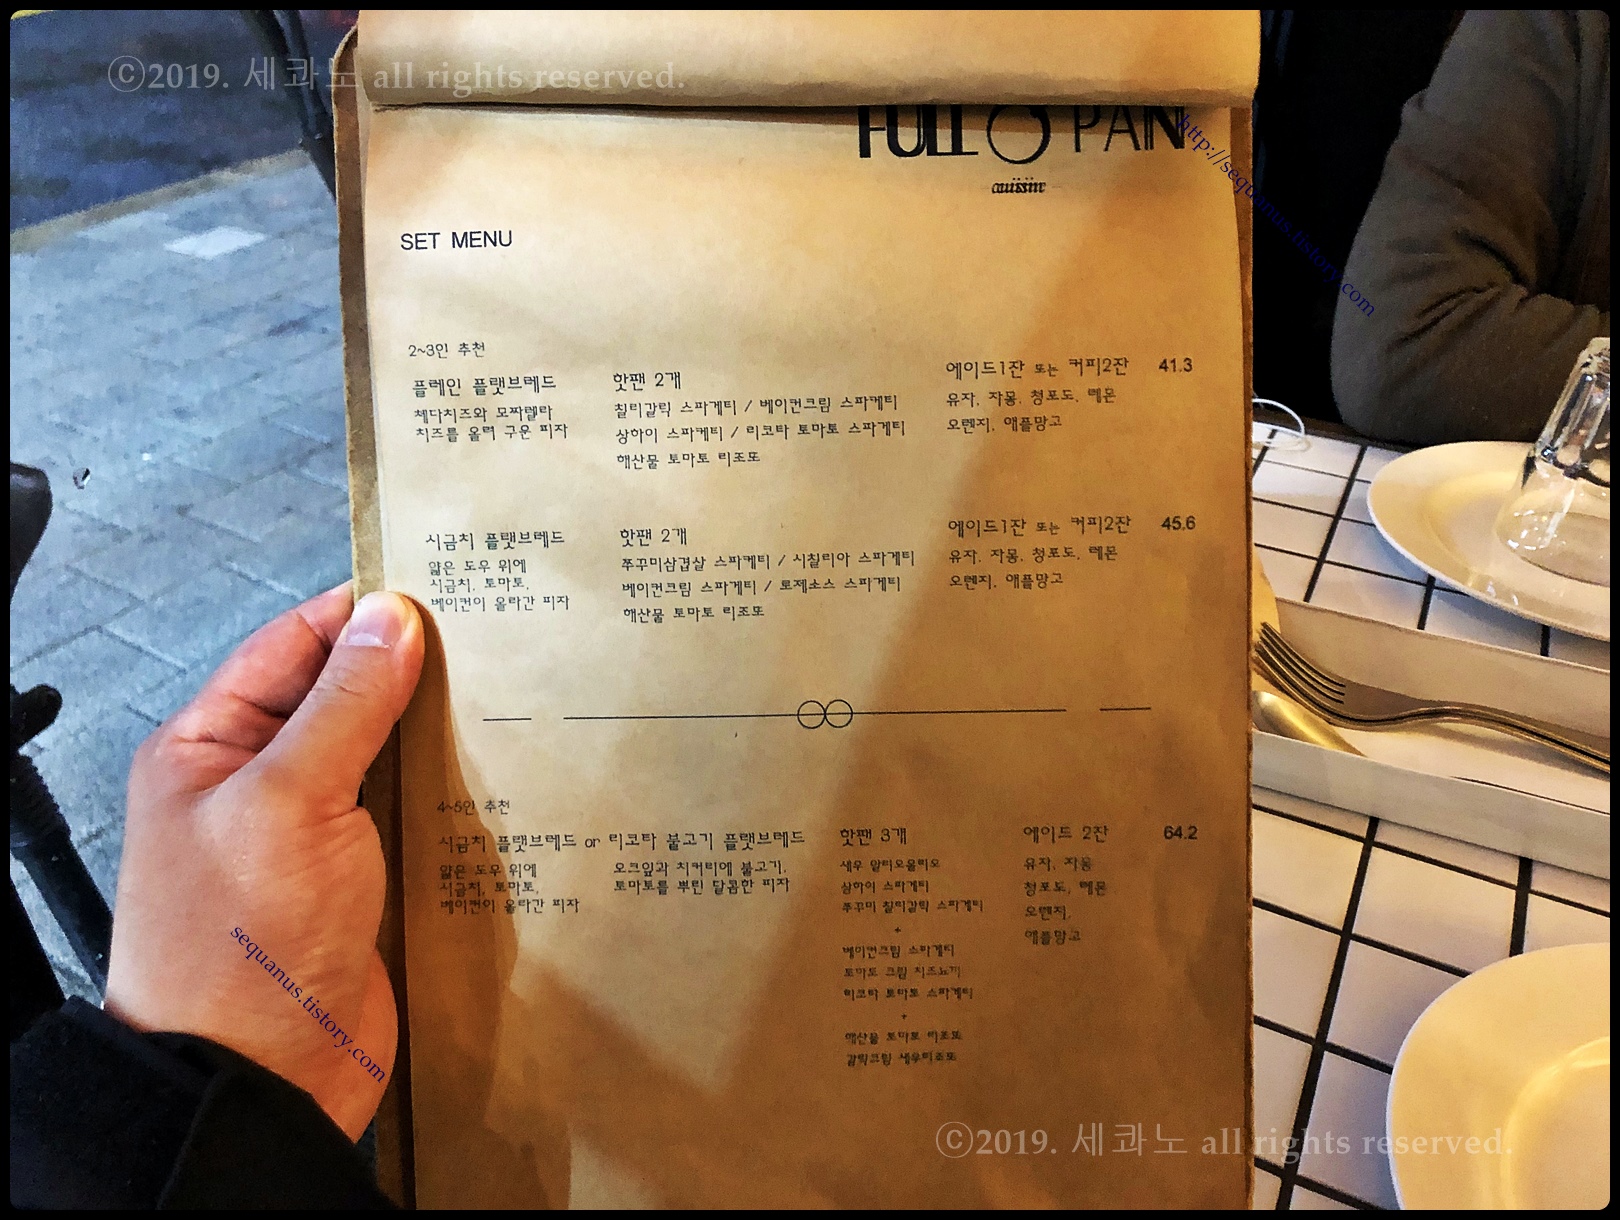 ©2019. 세콰노 all rights reserved.
FULL PAN
cuisine
http://sequanus.tistory.com
SET MENU
2~3인 추천
플레인 플랫브레드
체다치즈와 모짜렐라
치즈를 올려 구운 피자
핫팬 2개
칠리갈릭 스파게티 / 베이컨크림 스파게티
상하이 스파게티 / 리코타 토마토 스파게티
해산물 토마토 리조또
에이드1잔 또는 커피2잔 41.3
유자, 자몽, 청포도, 레몬
오렌지, 애플망고
시금치 플랫브레드
얇은 도우 위에
시금치, 토마토,
베이컨이 올라간 피자
핫팬 2개
쭈꾸미삼겹살 스파게티 / 시칠리아 스파게티
베이컨크림 스파게티 / 로제소스 스파게티
해산물 토마토 리조또
에이드1잔 또는 커피2잔 45.6
유자, 자몽, 청포도, 레몬
오렌지, 애플망고
4~5인 추천
시금치 플랫브레드 or 리코타 불고기 플랫브레드
얇은 도우 위에
시금치, 토마토,
베이컨이 올라간 피자
오크잎과 치커리에 불고기,
토마토를 뿌린 달콤한 피자
핫팬 3개
새우 알리오올리오
상하이 스파게티
쭈꾸미 칠리갈릭 스파게티
+
베이컨크림 스파게티
토마토 크림 치즈뇨끼
리코타 토마토 스파게티
+
해산물 토마토 리조또
갈릭크림 새우리조또
에이드 2잔 64.2
유자, 자몽
청포도, 레몬
오렌지,
애플망고
sequanus.tistory.com
©2019. 세콰노 all rights reserved.